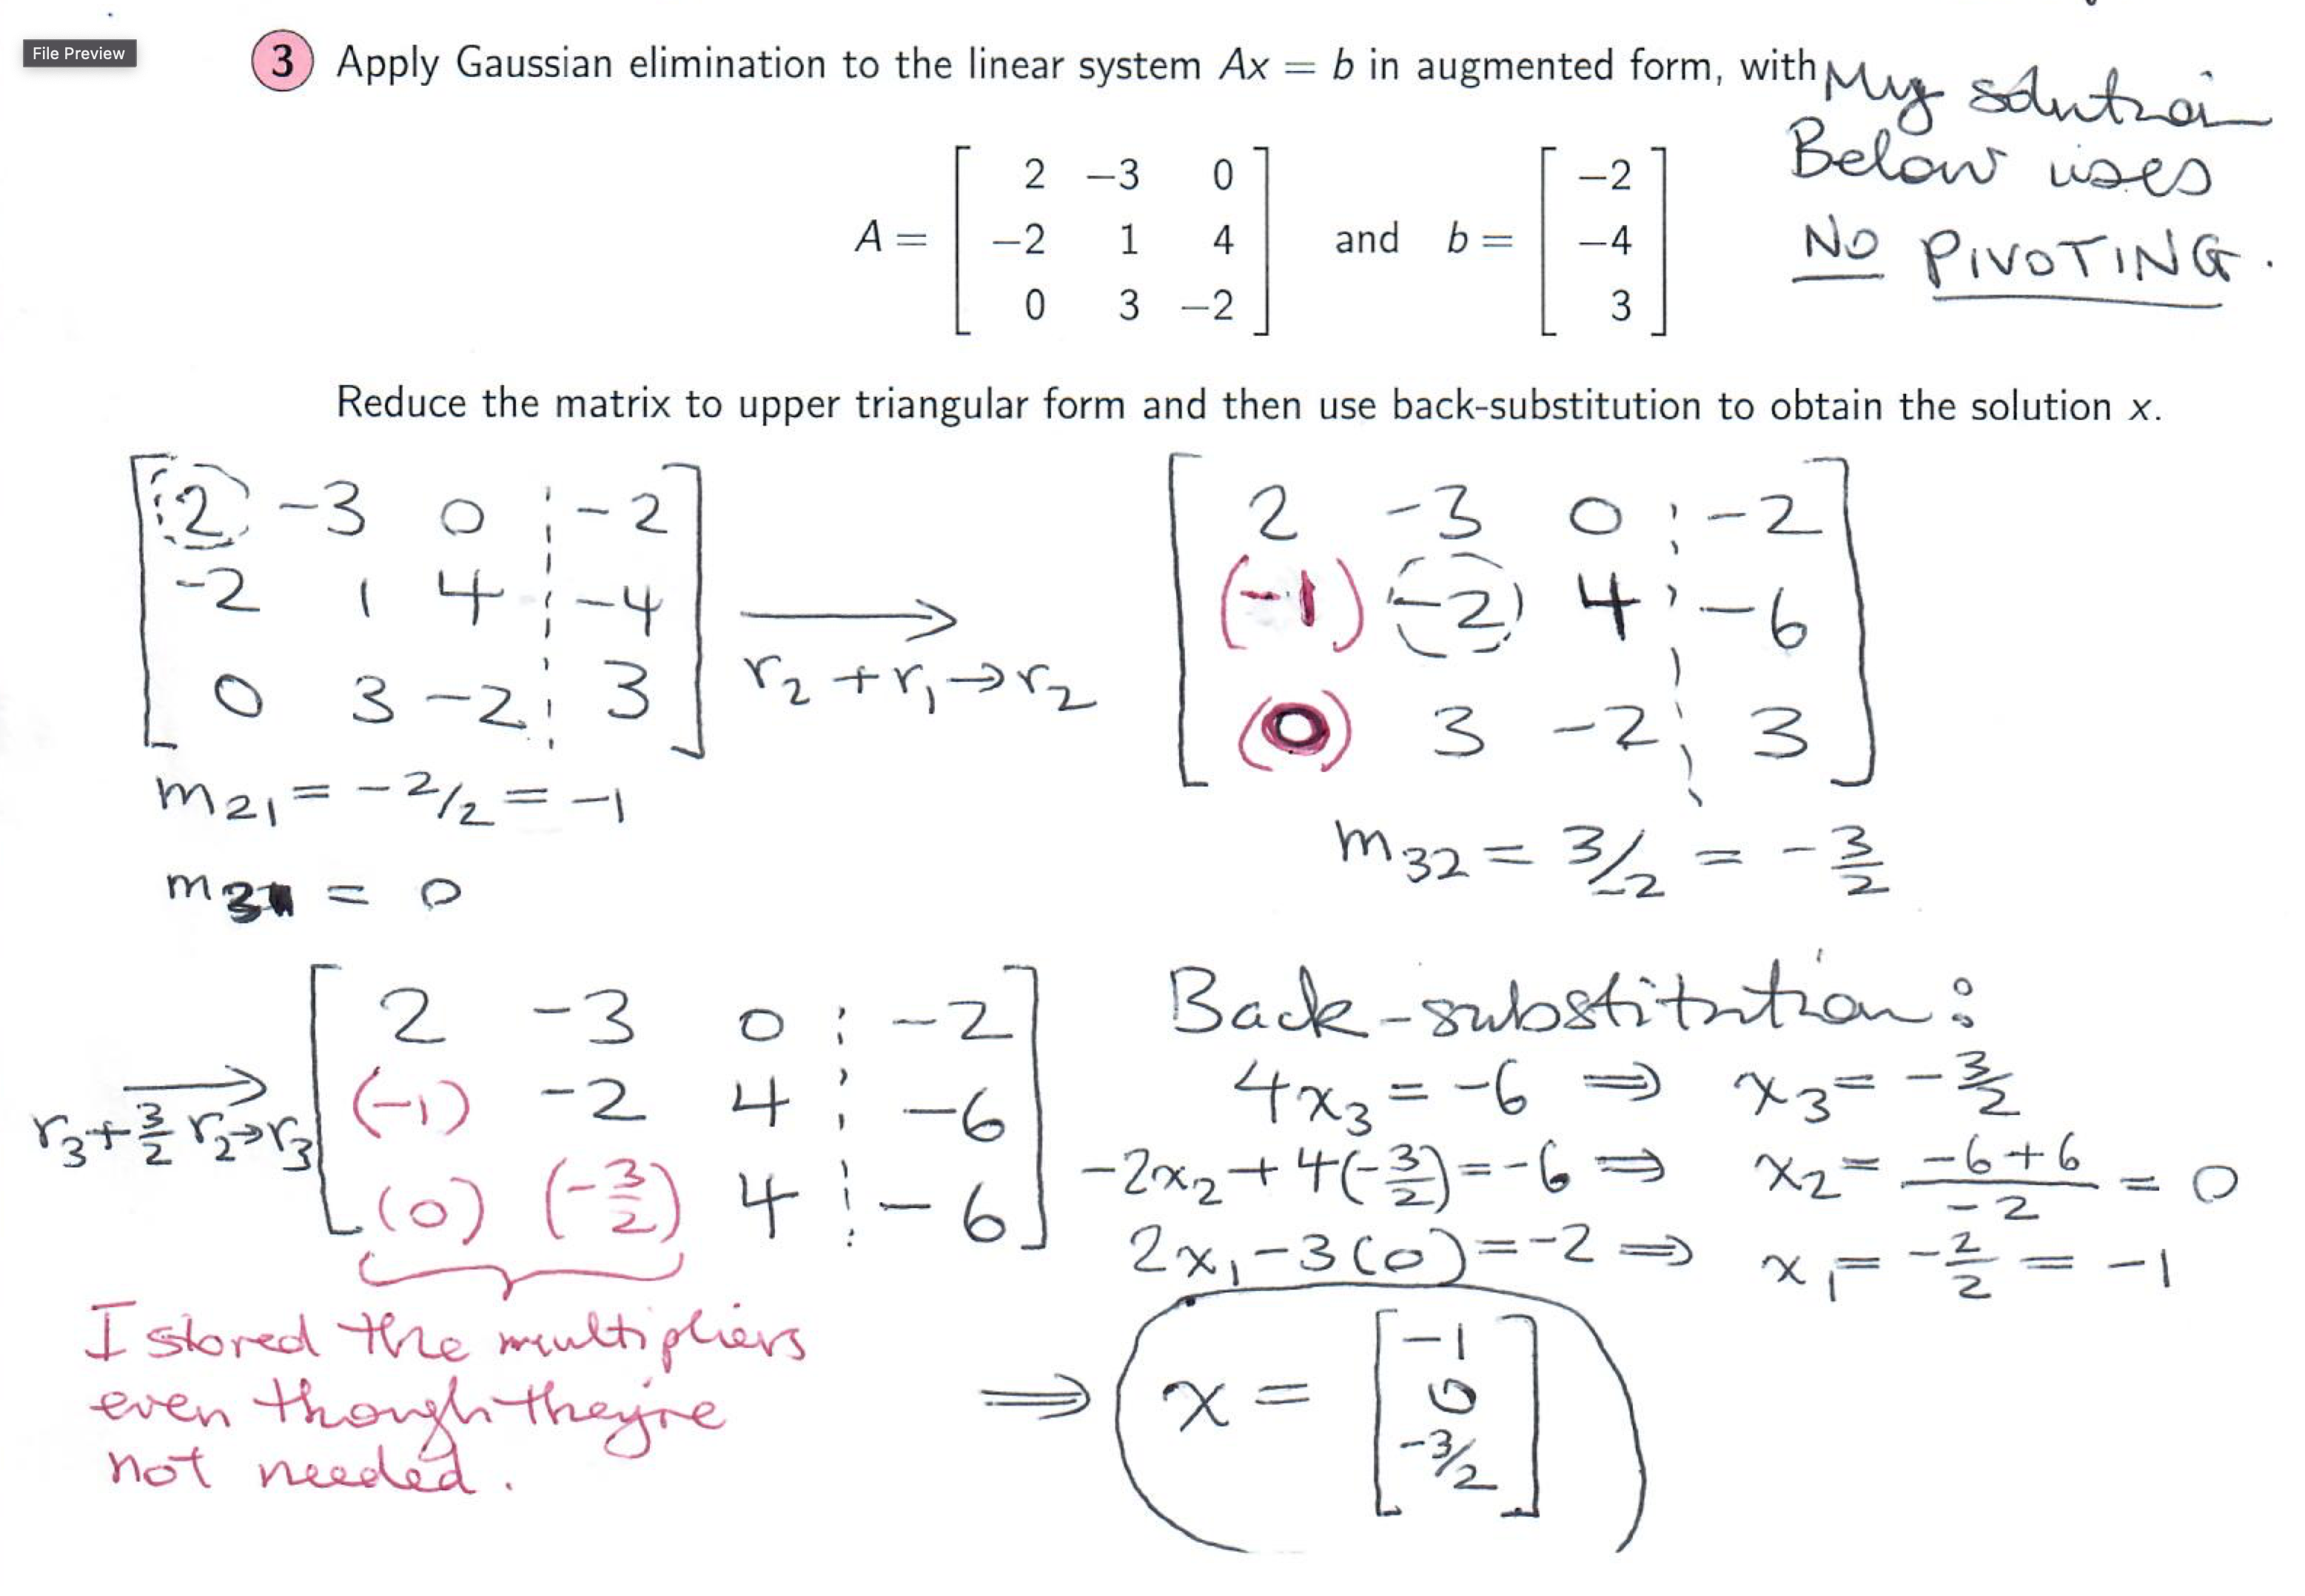 File Preview
3 Apply Gaussian elimination to the linear system Ax = b in augmented form, with
My solution
Below uses
NO PIVOTING.
A = [ 2 −3 0 ; −2 1 4 ; 0 3 −2 ] and b = [ −2 ; −4 ; 3 ]
Reduce the matrix to upper triangular form and then use back-substitution to obtain the solution x.
2 -3 0 ¦ -2
-2 1 4 ¦ -4
0 3 -2 ¦ 3
r₂ + r₁ → r₂
2 -3 0 ¦ -2
(-1) -2 4 ¦ -6
(0) 3 -2 ¦ 3
m₂₁ = -2/2 = -1
m₃₁ = 0
m₃₂ = 3/-2 = -3/2
r₃ + 3/2 r₂ → r₃
2 -3 0 ¦ -2
(-1) -2 4 ¦ -6
(0) (-3/2) 4 ¦ -6
I stored the multipliers
even though they're
not needed.
Back-substitution:
4x₃ = -6 ⟹ x₃ = -3/2
-2x₂ + 4(-3/2) = -6 ⟹ x₂ = (-6+6)/-2 = 0
2x₁ - 3(0) = -2 ⟹ x₁ = -2/2 = -1
⟹ x = [ -1 ; 0 ; -3/2 ]